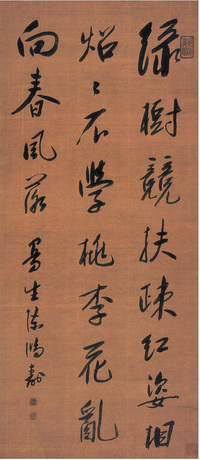 緑樹競扶疎紅姿相
炤々不學桃李花亂
向春風落 曼生陳鴻壽